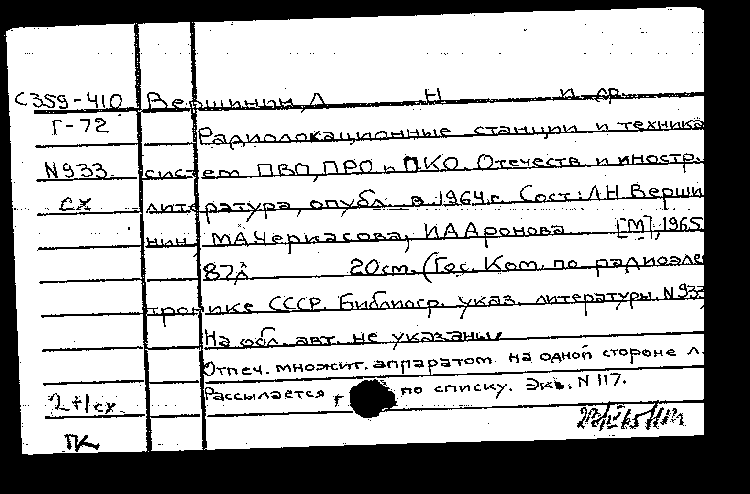 С359-410 Вершинин, Л Н и др.
Г-72 Радиолокационные станции и техника
N933. систем ПВО, ПРО и ПКО. Отечеств и иностр.
сх литература, опубл. в 1964г. Сост: Л Н Верши
нин, М.А.Черкасова, И А Аронова [М], 1965
87л 20см. (Гос. Ком. по радиоэле
тронике СССР. Библиогр. указ. литературы. N933
На обл. авт. не указаны,
Отпеч. множит. аппаратом на одной стороне л.
2+1сх Рассылается по списку. Экз. N 117.
ПК